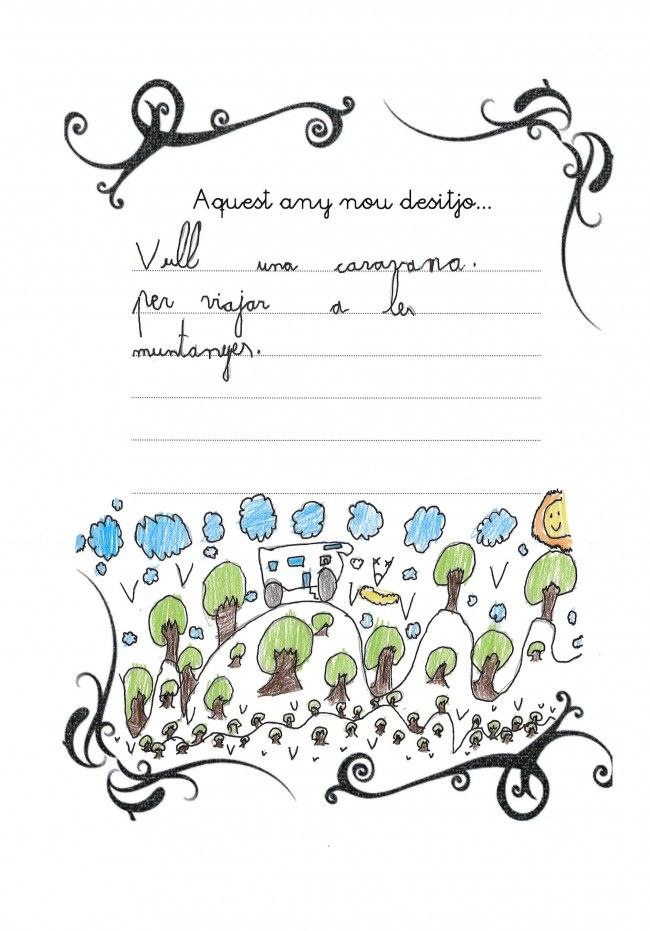 Aquest any nou desitjo...
Vull una caravana.
per viajar a les
muntanyes.